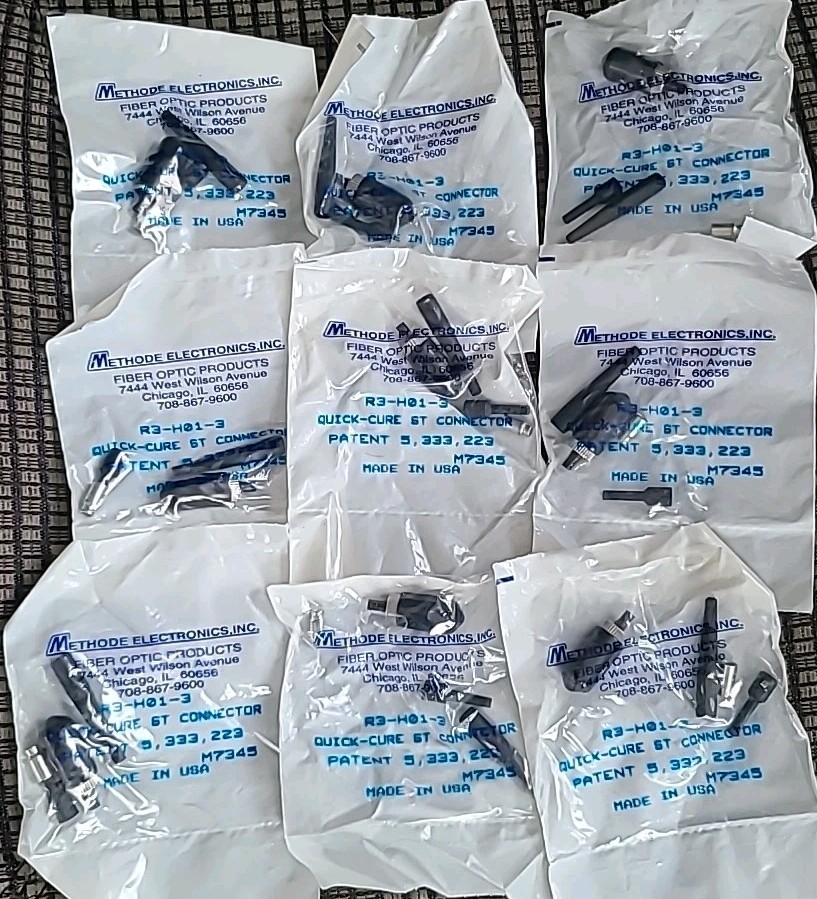 METHODE ELECTRONICS, INC.
FIBER OPTIC PRODUCTS
7444 West Wilson Avenue
Chicago, IL 60656
67-9600
QUICK- CONNECTOR
5,333,223
M7345
MADE IN USA
METHODE ELECTRONICS, INC.
FIBER OPTIC PRODUCTS
7444 West Wilson Avenue
Chicago, IL 60656
708-867-9600
R3-H01-3
QUICK-CURE ST CONNECTOR
PATENT 5,333,223
M7345
MADE IN USA
METHODE ELECTRONICS, INC.
FIBER OPTIC PRODUCTS
7444 West Wilson Avenue
Chicago, IL 60656
708-867-9600
R3-H01-3
QUICK-CURE ST CONNECTOR
5,333,223
M7345
MADE IN USA
METHODE ELECTRONICS, INC.
FIBER OPTIC PRODUCTS
7444 West Wilson Avenue
Chicago, IL 60656
708-867-9600
R3-H01-3
QUICK-CURE ST CONNECTOR
PATENT 5,333,223
M7345
METHODE ELECTRONICS, INC.
FIBER OPTIC PRODUCTS
7444 West Wilson Avenue
Chicago, IL 60656
708-867-9600
R3-H01-3
QUICK-CURE ST CONNECTOR
PATENT 5,333,223
M7345
MADE IN USA
METHODE ELECTRONICS, INC.
FIBER OPTIC PRODUCTS
7444 West Wilson Avenue
Chicago, IL 60656
708-867-9600
R3-H01-3
CONNECTOR
PATENT 5,333,223
M7345
MADE IN USA
METHODE ELECTRONICS, INC.
FIBER OPTIC PRODUCTS
7444 West Wilson Avenue
Chicago, IL 60656
708-867-9600
R3-H01-3
QUICK-CURE ST CONNECTOR
PATENT 5,333,223
M7345
MADE IN USA
METHODE ELECTRONICS, INC.
FIBER OPTIC PRODUCTS
7444 West Wilson Avenue
Chicago, IL 60656
708-867-9600
R3-H01-3
QUICK-CURE ST CONNECTOR
PATENT 5,333,223
M7345
MADE IN USA
METHODE ELECTRONICS, INC.
FIBER OPTIC PRODUCTS
7444 West Wilson Avenue
Chicago, IL 60656
708-867-9600
R3-H01-
QUICK-CURE ST CONNECTOR
PATENT 5,333,223
M7345
MADE IN USA